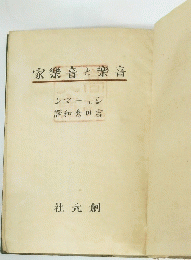 音樂と音樂家
シューマン
吉田秀和譯
創元社